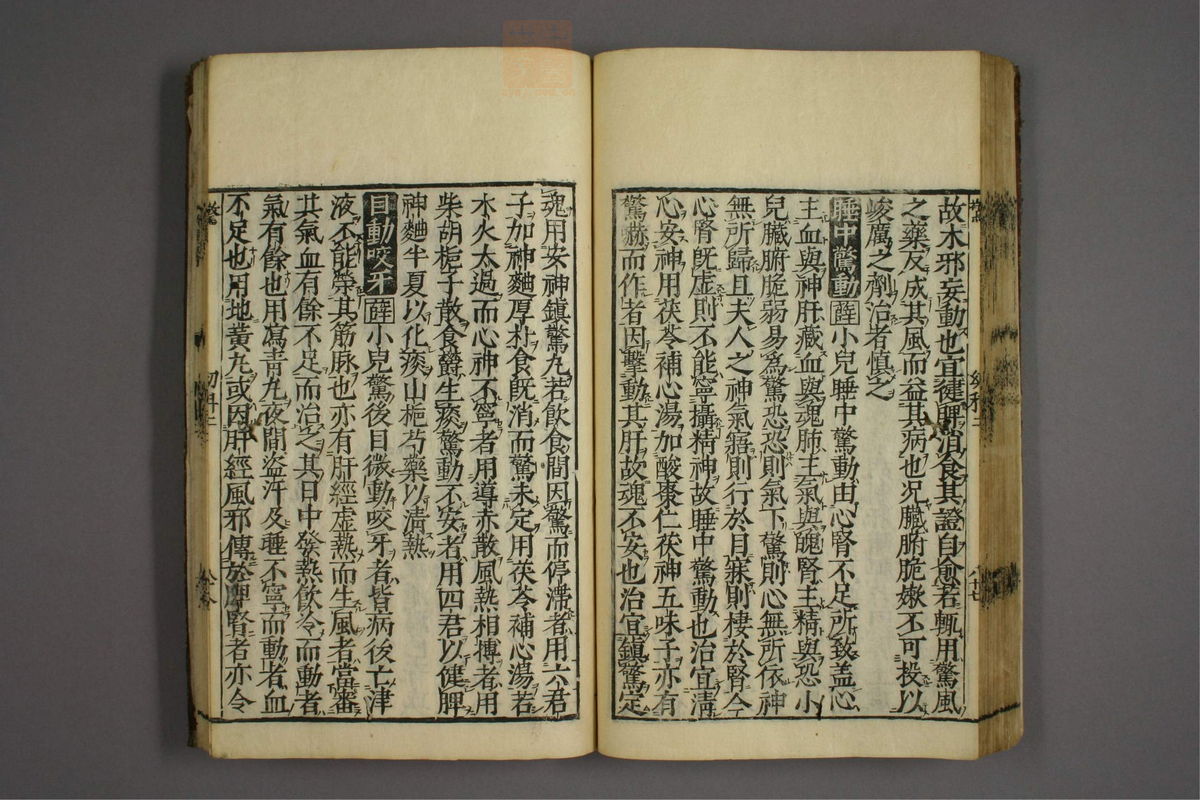 故木邪妄動也宜健脾消食其證自愈若輒用驚風
之藥反成其風而益其病也况臟腑脆嫰不可投以
峻厲之劑治者慎之
睡中驚動薛小兒睡中驚動由心腎不足所致盖心
主血與神肝藏血與魂肺主氣與魄腎主精與恐小
兒臟腑脆弱易為驚恐恐則氣下驚則心無所依神
無所歸且夫人之神氣寤則行於目寐則棲於腎今
心腎旣虛則不能寧攝精神故睡中驚動也治宜清
心安神用茯苓補心湯加酸棗仁茯神五味子亦有
驚嚇而作者因擊動其肝故魂不安也治宜鎮驚定
幼科二
八十七
魂用安神鎮驚丸若飲食間因驚而停滯者用六君
子加神麯厚朴食旣消而驚未定用茯苓補心湯若
木火太過而心神不寧者用導赤散風熱相搏者用
柴胡梔子散食欝生痰驚動不安者用四君以健脾
神麯半夏以化痰山梔芍藥以清熱
目動咬牙薛小兒驚後目微動咬牙者皆病後亡津
液不能榮其筋脉也亦有肝經虛熱而生風者當審
其氣血有餘不足而治之其日中發熱飲冷而動者
氣有餘也用瀉青丸夜間盗汗及睡不寧而動者血
不足也用地黃丸或因肝經風邪傳於脾腎者亦令